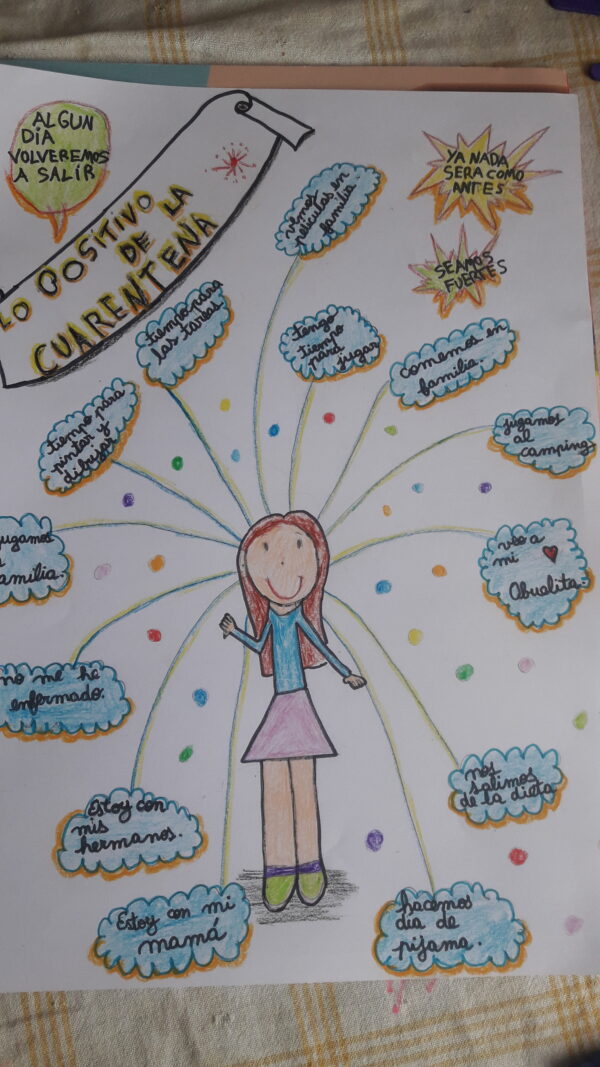 ALGUN
DÍA
VOLVEREMOS
A SALIR
LO POSITIVO
DE LA
CUARENTENA
YA NADA
SERA COMO
ANTES
SEAMOS
FUERTES
vemos
peliculas en
familia.
tiempo para
las tareas.
tengo
tiempo
para
jugar
comemos en
familia.
tiempo para
pintar y
dibujar
jugamos
al
camping
jugamos
familia.
veo a
mi
Abuelita.
no me he
enfermado.
nos
salimos
de la dieta
Estoy con
mis
hermanos.
Estoy con mi
mamá
hacemos
día de
pijama.